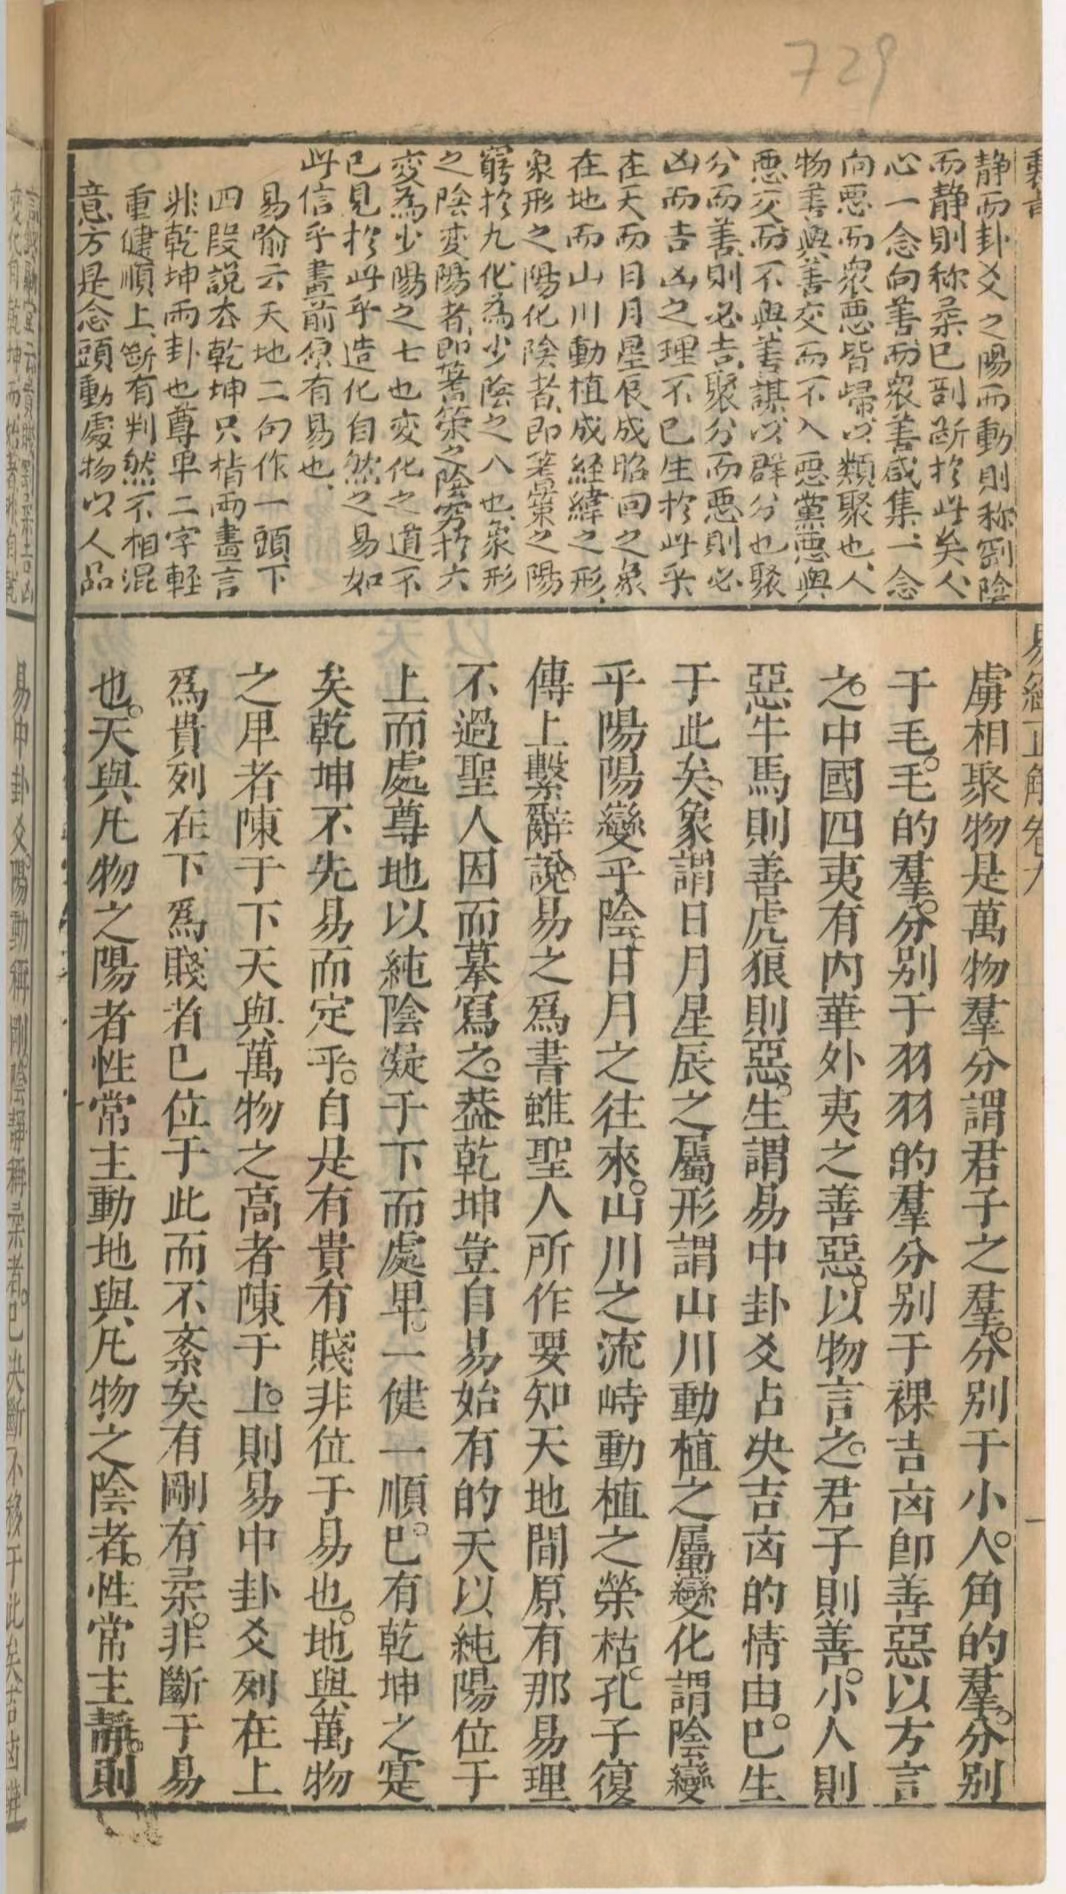 729
靜而卦爻之陽而動則称剛陰
而靜則称柔已剖断於此矣人
心一念向善而衆善咸集一念
向悪而衆悪皆歸以類聚也人
物善與善交而不入悪黨悪與
悪交而不與善謀以群分也聚
分而善則必吉聚分而悪則必
凶而吉凶之理不已生於此乎
在天而日月星辰成昭回之象
在地而山川動植成経緯之形
象形之陽化陰者即蓍策之陽
窮於九化為少陰之八也象形
之陰変陽者即蓍策之陰窮於六
変為少陽之七也変化之道不
已見於此乎造化自然之易如
此信乎畫前原有易也
易喻云天地二句作一頭下
四段説去乾坤只指两畫言
非乾坤两卦也尊卑二字輕
重健順上断有判然不相混
意方是念頭動處物以人品
易經正解卷九
一
虜相聚物是萬物羣分謂君子之羣分別于小人角的羣分別
于毛毛的羣分別于羽羽的羣分別于裸吉凶卽善惡以方言
之中國四夷有內華外夷之善惡以物言之君子則善小人則
惡牛馬則善虎狼則惡生謂易中卦爻占央吉凶的情由巳生
于此矣象謂日月星辰之屬形謂山川動植之屬變化謂陰變
乎陽陽變乎陰日月之往來山川之流峙動植之榮枯孔子復
傳上繫辭說易之爲書雖聖人所作要知天地間原有那易理
不過聖人因而摹寫之葢乾坤豈自易始有的天以純陽位于
上而處尊地以純陰凝于下而處卑一健一順巳有乾坤之㝎
矣乾坤不先易而定乎自是有貴有賤非位于易也地與萬物
之卑者陳于下天與萬物之高者陳于上則易中卦爻列在上
爲貴列在下爲賤者巳位于此而不紊矣有剛有柔非斷于易
也天與凡物之陽者性常主動地與凡物之陰者性常主靜則
易中卦爻陽動稱剛陰靜稱柔者巳决斷不移于此矣吉凶